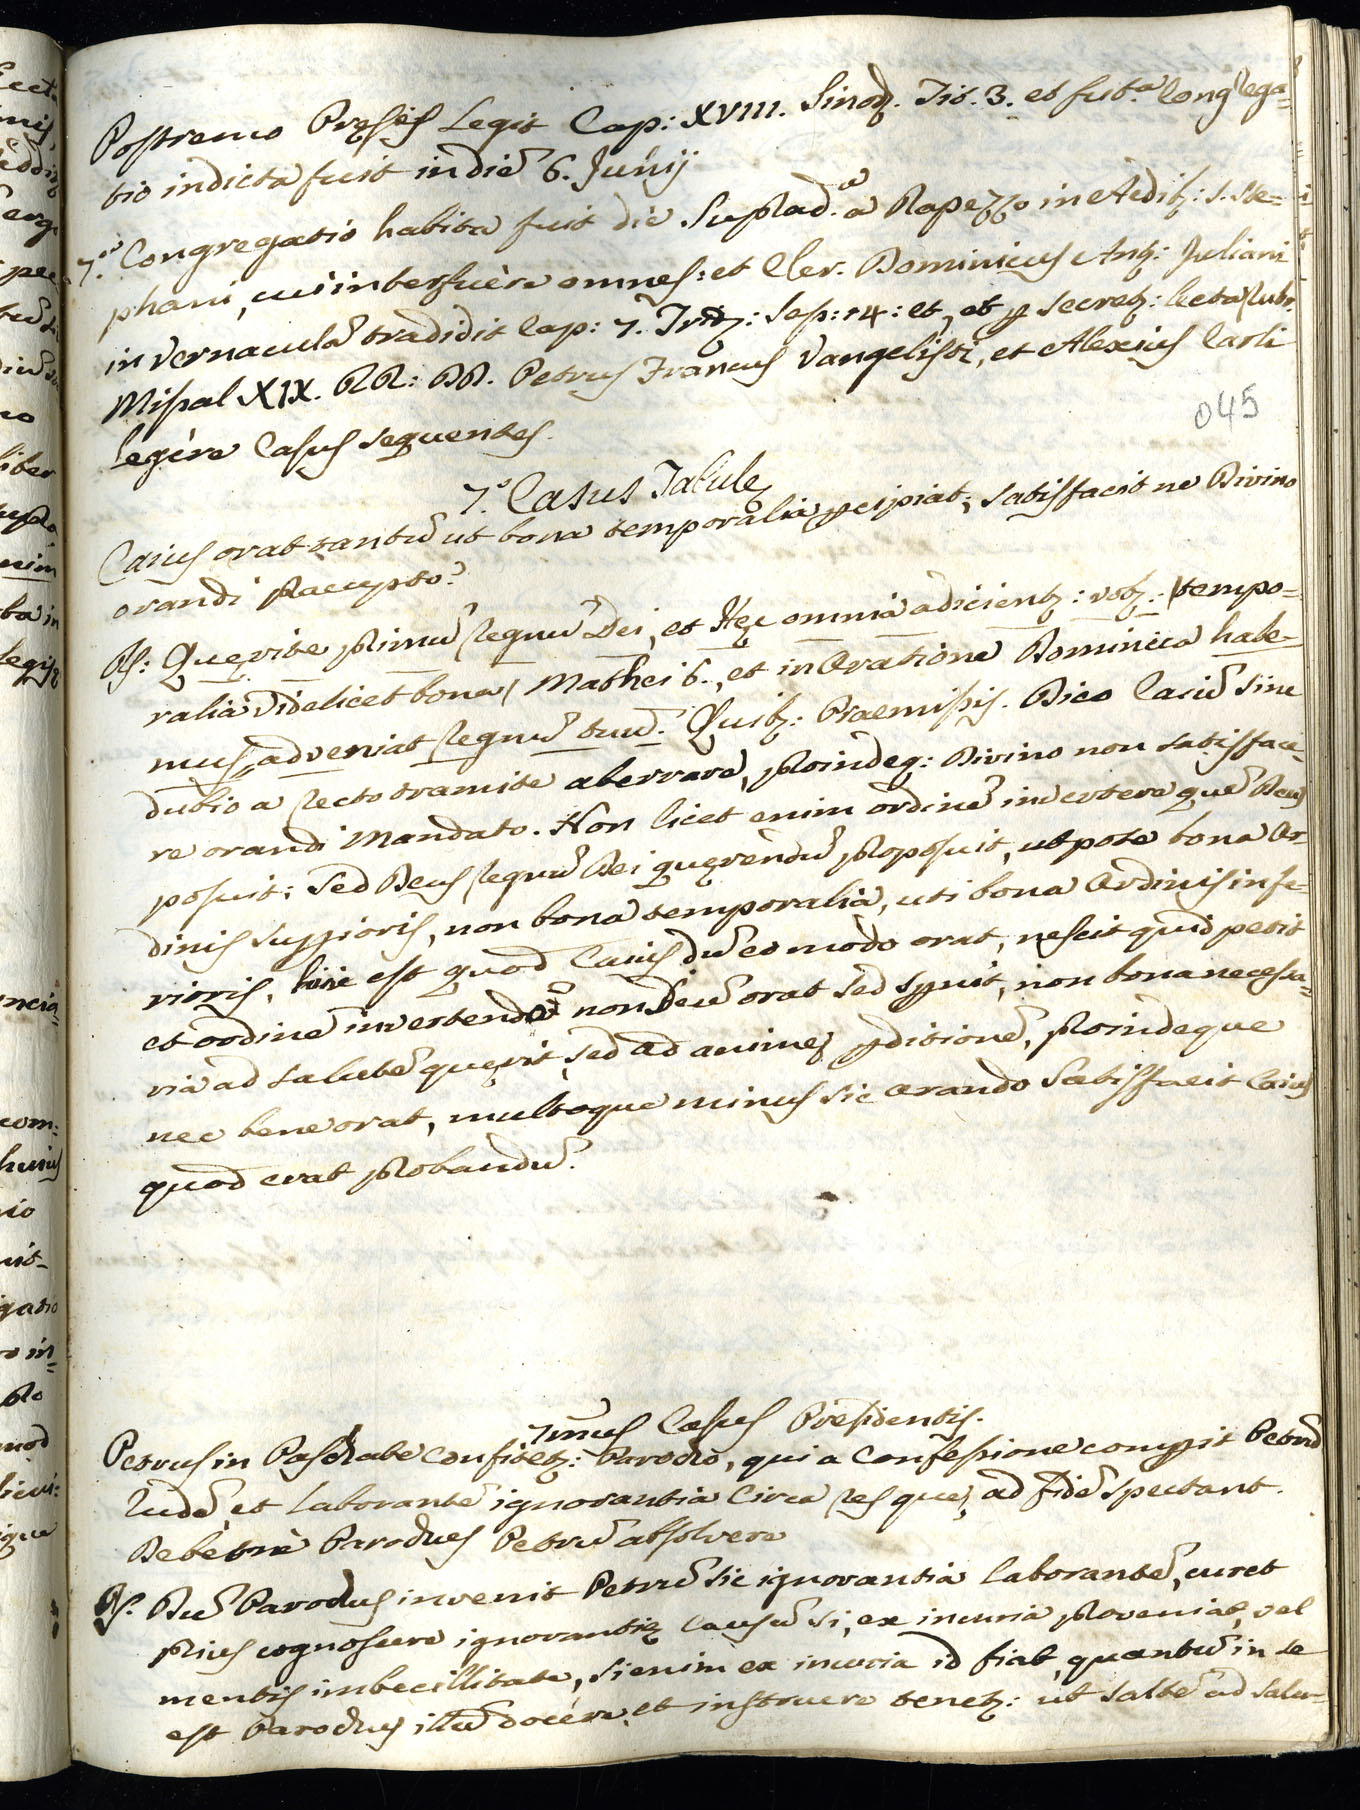 Postremo Pręses Legit Cap: XVIII. Sinod. Tit. 3. et fut.ª Cong rega=
tio indicta fuit in die 6. Junij
7.ª Congregatio habita fuit die Suprad.ª a Rapezzo in Aedib: S. Ste=
phani, cui interfuère omnes: et Cler. Dominicus Ant: Juliani
in vernaculã tradidit Cap: 7. Trid: Sess: 14: et, et p secret: lecta rubr.
Missal XIX. RR: DD. Petrus Francus Vangelisti, et Alexius Carli
legère Casus sequentes.
045
7.º Casus Tabulę
Caius orat tantũ ut bona temporalia pcipiat; satisfacit ne Divino
orandi pracepto?
R: Quęrite primũ regnũ Dei, et Hęc omnia adicient: vob: /tempo=
ralia videlicet bona/ Mathei 6., et in Oratione Dominica habe=
mus, adveniat regnũ tuũ. Quib: Praemissis. Dico Caiũ sine
dubio a recto tramite aberrare, proindeq: Divino non satisface=
re orandi Mandato. Non licet enim ordinẽ invertere quẽ Deus
posuit; Sed Deus regnũ Dei quęrendũ proposuit, utpote bona Or=
dinis suppioris, non bona temporalia, uti bona Ordinis infe=
rioris, hinc est quod Caius dũ eo modo orat, nescit quid petit
et ordinẽ invertendo non Deũ orat sed spnit, non bona necessa=
ria ad salutẽ quęrit, sed ad animę pditionẽ, proindeque
nec bene orat, multoque minus sic orando Satisfacit Caius
quod erat probandũ.
7mus Casus Presidentis.
Petrus in Paschate confitet: Parocho, qui a confessione compit Petrũ
rudẽ, et laborantẽ ignorantia Circa res quę ad fidẽ spectant.
Debet ne Parochus Petrũ absolvere
R. Dũ Parochus invenit Petrũ sic ignorantia laborantẽ, curet
prius cognoscere ignorantię causã si, ex incuria proveniat, vel
mentis imbecillitate, si enim ex incuria id fiat, quantũ in se
est Parochus illũ docère, et instruere tenet: ut saltẽ ad salu=